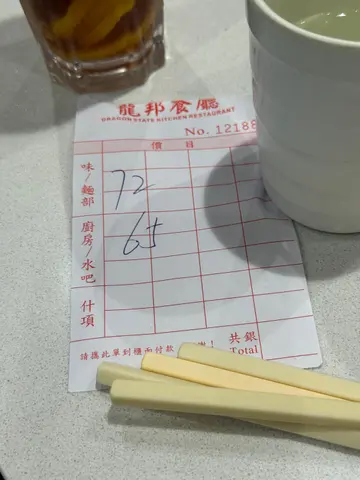 龍邦餐廳
DRAGON STATE KITCHEN RESTAURANT
No. 12188
價目
味/麵部
72
廚房/水吧
65
什項
請攜此單到櫃面付款
共銀
Total